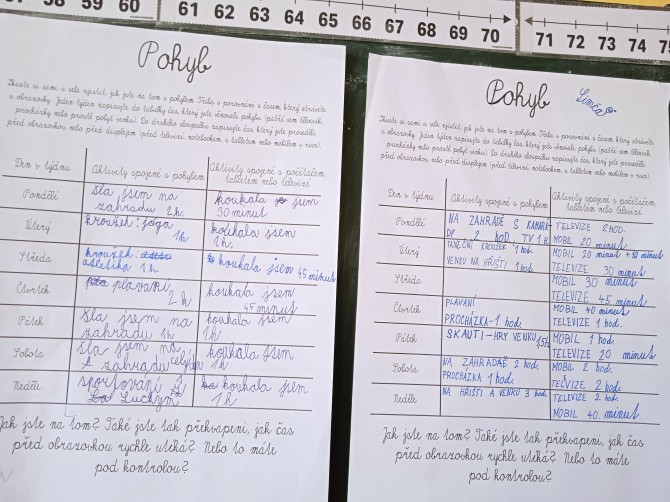 58 59 60 61 62 63 64 65 66 67 68 69 70 71 72 73 74 75
Pohyb
Zkuste se sami u sebe zjistit, jak jste na tom s pohybem. Třeba v porovnání s časem, který strávíte
u obrazovky. Jeden týden zapisujte do tabulky čas, který jste věnovali pohybu (patří sem tělocvik,
procházky nebo prostě pobyt venku). Do druhého sloupečku zapisujte čas, který jste proseděli
před obrazovkou nebo před displejem (před televizí, notebookem, s tabletem nebo mobilem v ruce).
Den v týdnu
Aktivity spojené s pohybem
Aktivity spojené s počítačem,
tabletem nebo televizí
Pondělí
šla jsem na
zahradu 2h.
koukala jsem
30 minut
Úterý
kroužek: jóga
1h
koukala jsem
1h.
Středa
kroužek:
atletika 1h
koukala jsem 45 minut
Čtvrtek
plavání
2h
koukala jsem
45 minut
Pátek
šla jsem na
zahradu 1h
koukala jsem
1h
Sobota
šla jsem na
zahradu celý den
koukala jsem
1h
Neděle
sportování s
Luckým
koukala jsem
1h
Jak jste na tom? Také jste tak překvapeni, jak čas
před obrazovkou rychle utíká? Nebo to máte
pod kontrolou?
Pohyb
Zkuste se sami u sebe zjistit, jak jste na tom s pohybem. Třeba v porovnání s časem, který strávíte
u obrazovky. Jeden týden zapisujte do tabulky čas, který jste věnovali pohybu (patří sem tělocvik,
procházky nebo prostě pobyt venku). Do druhého sloupečku zapisujte čas, který jste proseděli
před obrazovkou nebo před displejem (před televizí, notebookem, s tabletem nebo mobilem v ruce).
Den v týdnu
Aktivity spojené s pohybem
Aktivity spojené s počítačem,
tabletem nebo televizí
Pondělí
NA ZAHRADĚ S KAMARÁ-
DY 2 HOD. TV 1H
TELEVIZE 2 HOD.
MOBIL 20 minut
Úterý
TANEČNÍ KROUŽEK 1 hod.
VENKU NA HŘIŠTI 1 hod.
MOBIL 20 minut + 10 minut
TELEVIZE 30 minut
Středa
MOBIL 30 minut
TELEVIZE 45 minut
Čtvrtek
PLAVÁNÍ
PROCHÁZKA - 1 hod.
MOBIL 40 minut
TELEVIZE 1 hod.
Pátek
SKAUTI - HRY VENKU
MOBIL 1 hod.
TELEVIZE 20 minut
Sobota
NA ZAHRADĚ 2 hod.
PROCHÁZKA 1 hod.
MOBIL 2 hod.
TELEVIZE 2 hod.
Neděle
NA HŘIŠTI A VENKU 3 hod.
TELEVIZE 2 hod.
MOBIL 40. minut
Jak jste na tom? Také jste tak překvapeni, jak čas
před obrazovkou rychle utíká? Nebo to máte
pod kontrolou?